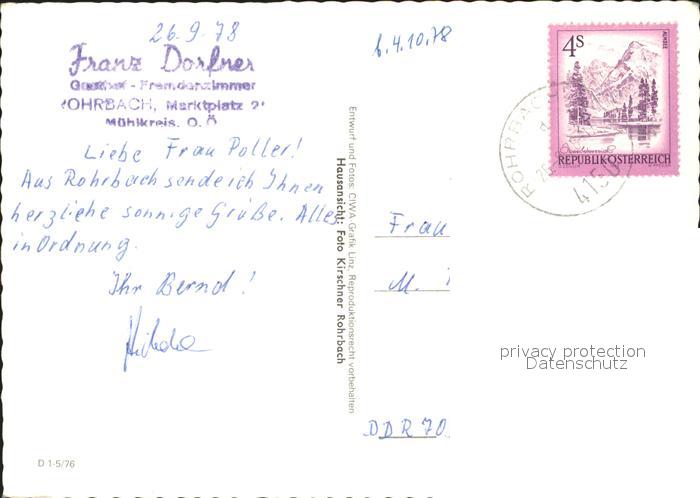 26.9.78
Franz Dorfner
Gasthof - Fremdenzimmer
OHRBACH, Marktplatz
Mühlkreis, O.Ö
Liebe Frau Poller!
Aus Rohrbach sende ich Ihnen
herzliche sonnige Grüße. Alles
in Ordnung.
Ihr Bernd!
D 1-5/76
Entwurf und Fotos: CIWA-Grafik Linz, Reproduktionsrecht vorbehalten
Hausansicht: Foto Kirschner Rohrbach
b. 4.10.78
4S
ALMSEE
REPUBLIK ÖSTERREICH
ROHRBACH
4150
Frau
M.
DDR 70
privacy protection
Datenschutz